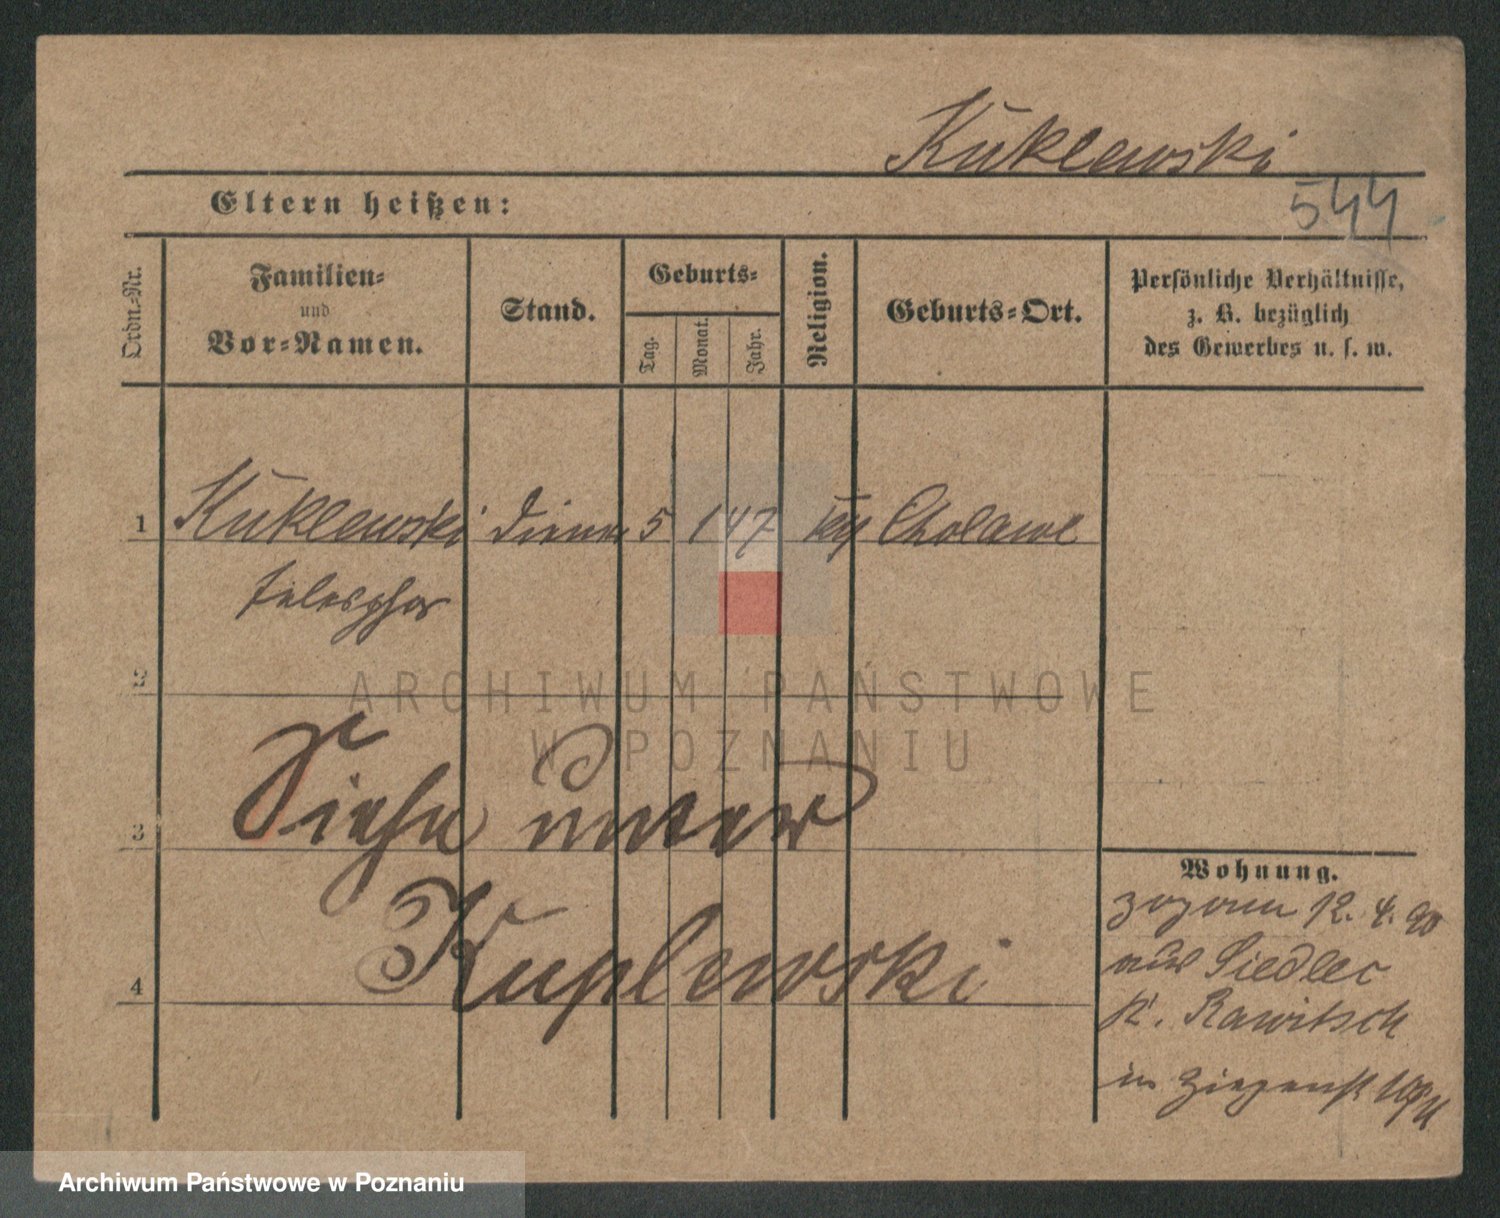 Kuklewski
Eltern heißen:
544
Ordn.-Nr.
Familien-
und
Vor-Namen.
Stand.
Geburts-
Tag.
Monat.
Jahr.
Religion.
Geburts-Ort.
Persönliche Verhältnisse,
z. B. bezüglich
des Gewerbes u. s. w.
1 Kuklewski Diener 5 1 47 Cholawe
Telesphor
2
ARCHIWUM PAŃSTWOWE
W POZNANIU
3 Siehe unter
4 Kuplewski
Wohnung.
12. 4. 90
aus Siedlec
K. Rawitsch
in Ziegenst
Archiwum Państwowe w Poznaniu